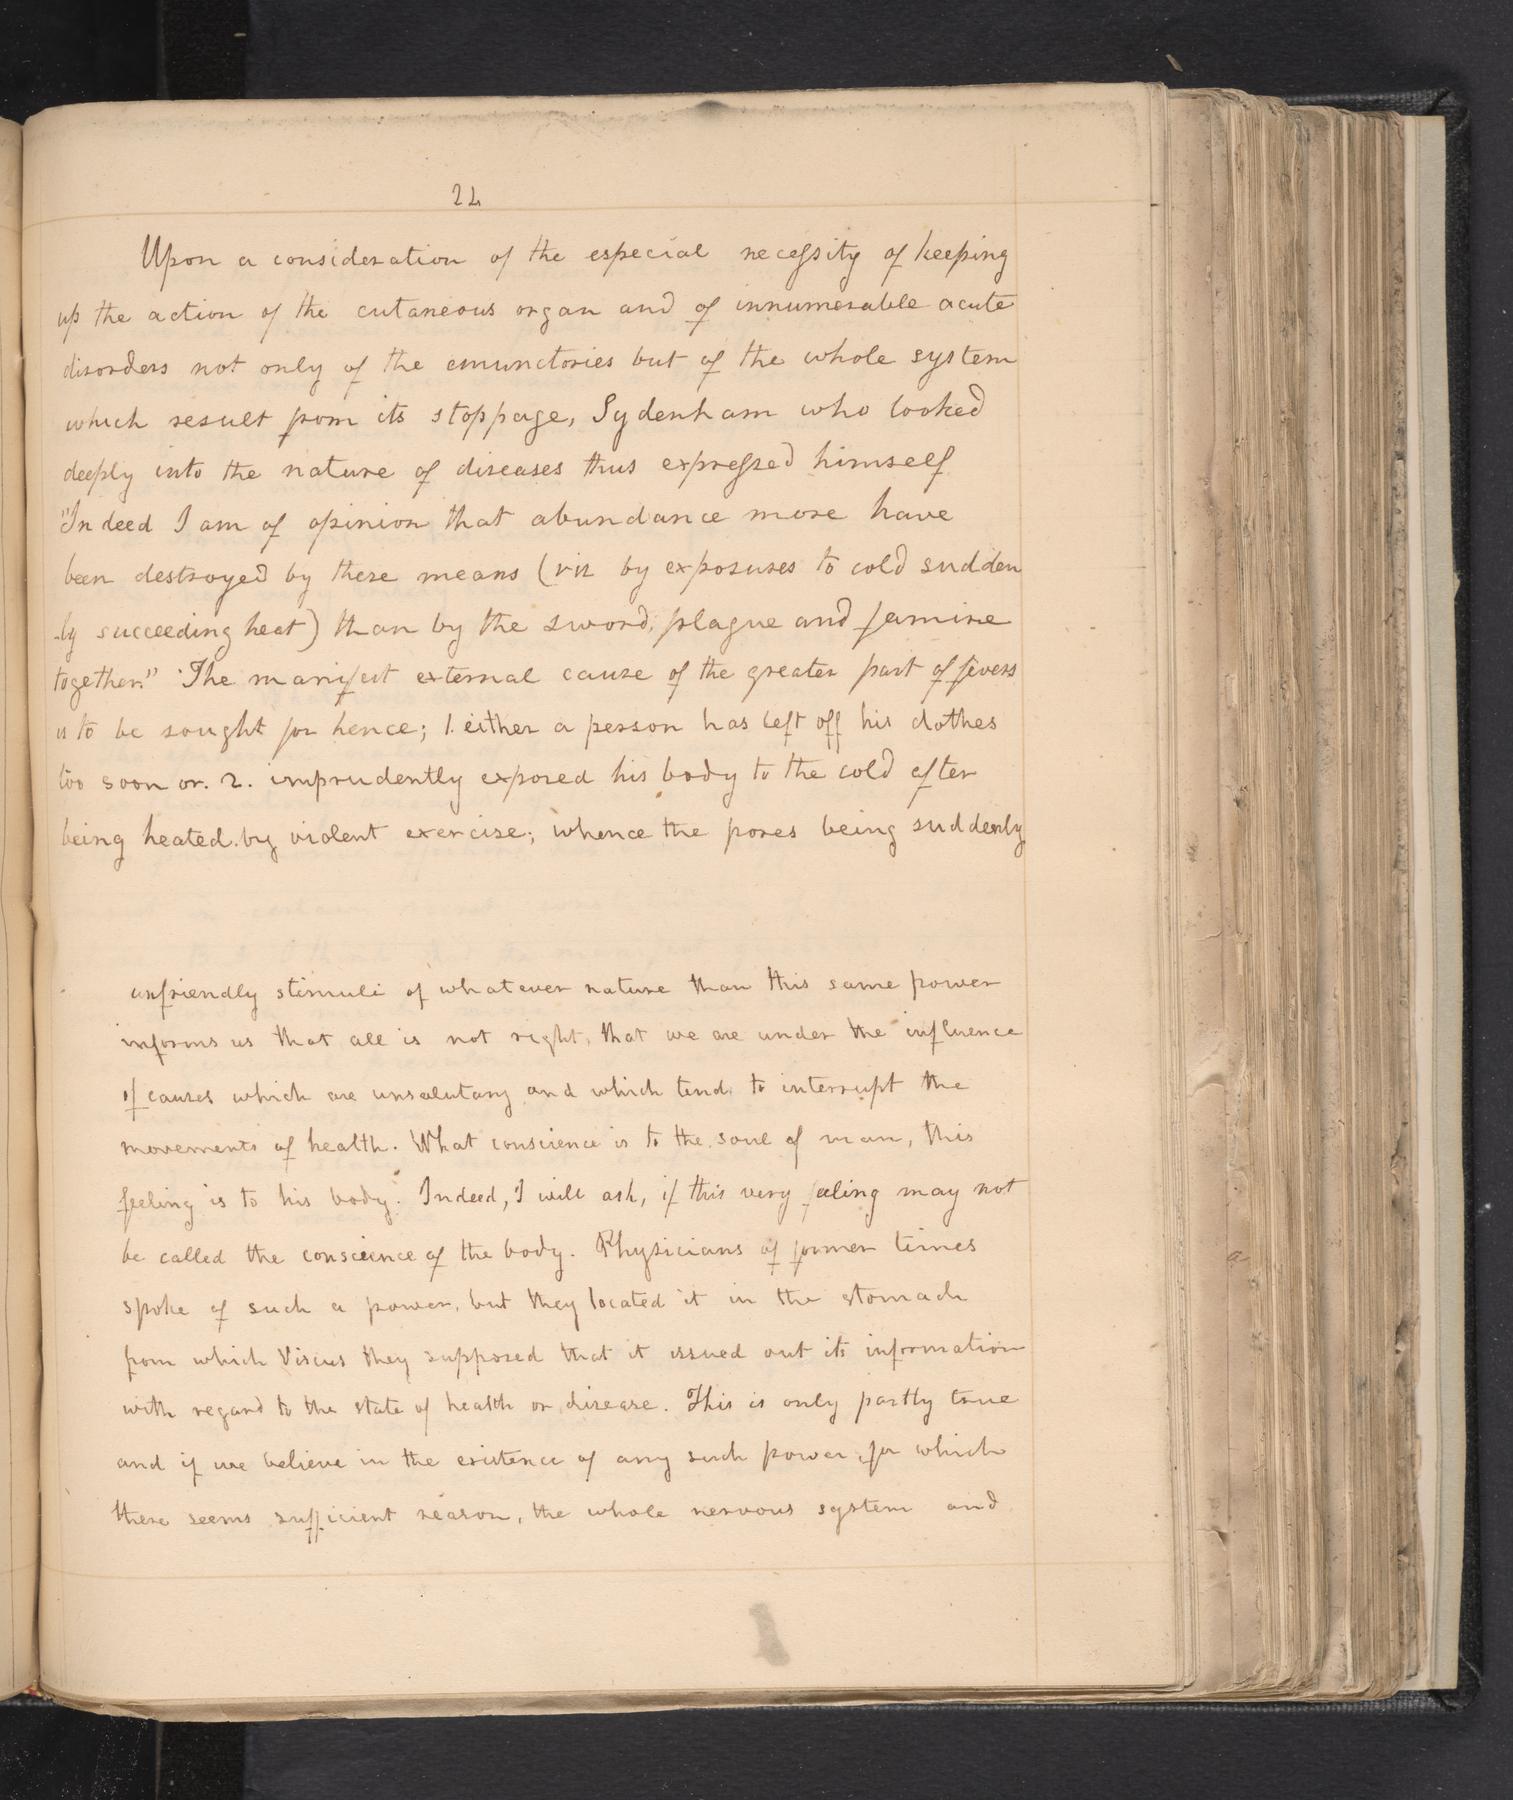 22
Upon a consideration of the especial necessity of keeping
up the action of the cutaneous organ and of innumerable acute
disorders not only of the emunctories but of the whole system
which result from its stoppage, Sydenham who looked
deeply into the nature of diseases thus expressed himself
"Indeed I am of opinion that abundance more have
been destroyed by these means (viz by exposures to cold sudden
-ly succeeding heat) than by the sword, plague and famine
together." The manifest external cause of the greater part of fevers
is to be sought for hence; 1. either a person has left off his clothes
too soon or. 2. imprudently exposed his body to the cold after
being heated by violent exercise; whence the pores being suddenly
unfriendly stimuli of whatever nature than this same power
informs us that all is not right, that we are under the influence
of causes which are unsalutary and which tend to interrupt the
movements of health. What conscience is to the soul of man, this
feeling is to his body. Indeed, I will ask, if this very feeling may not
be called the conscience of the body. Physicians of former times
spoke of such a power, but they located it in the stomach
from which Viscus they supposed that it issued out its information
with regard to the state of health or disease. This is only partly true
and if we believe in the existence of any such power, for which
there seems sufficient reason, the whole nervous system and